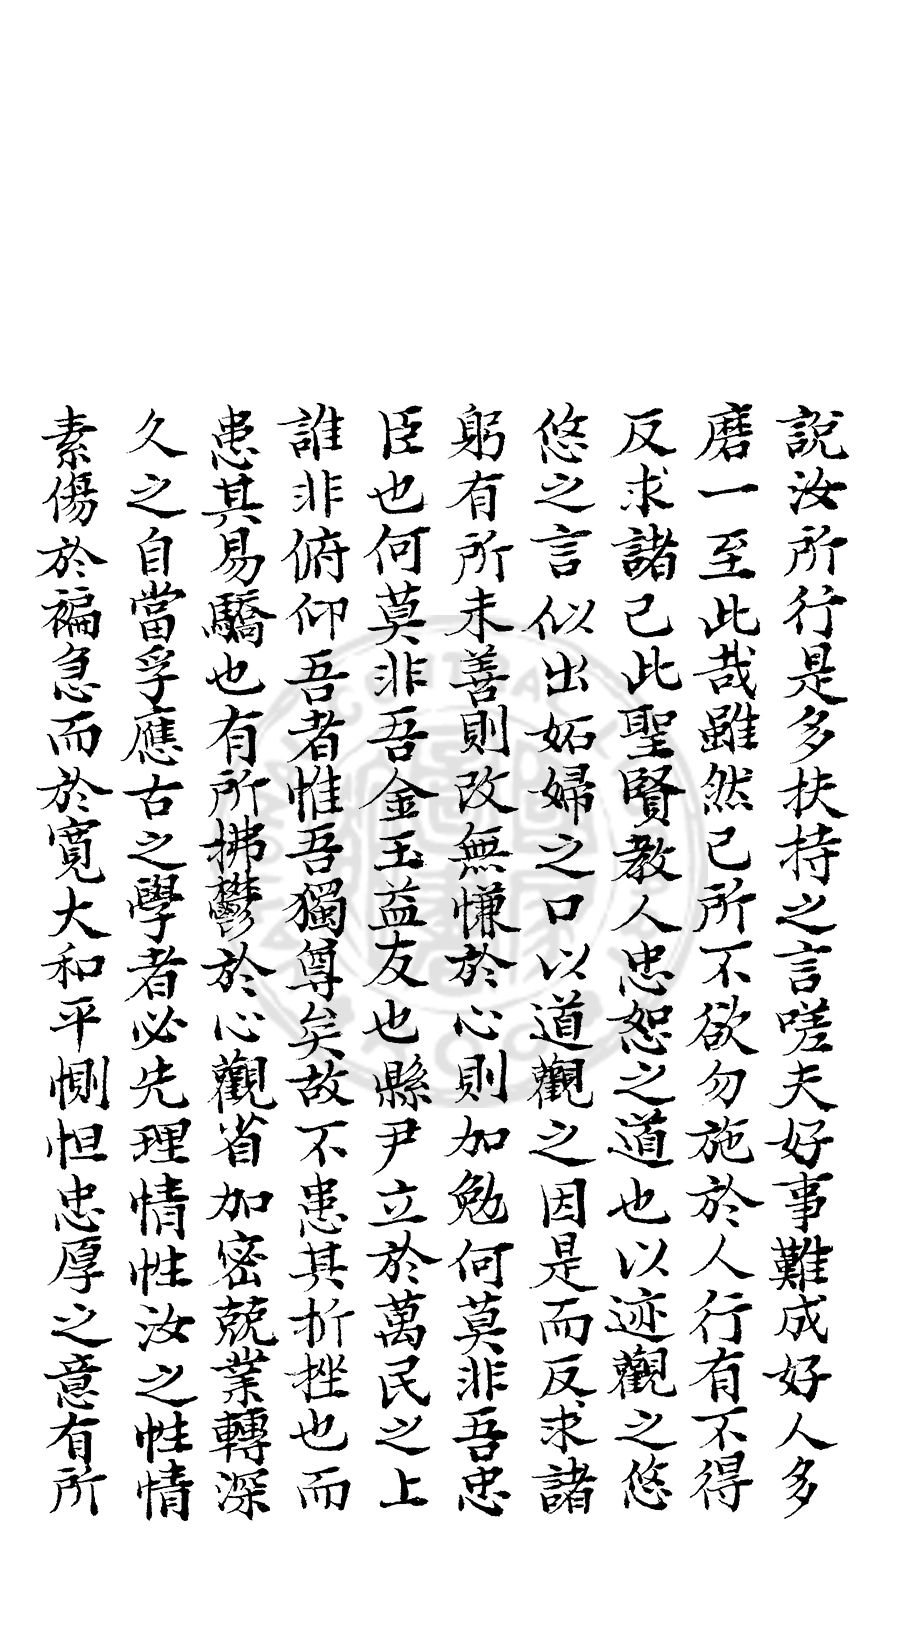 說汝所行是多扶持之言嗟夫好事難成好人多
磨一至此哉雖然己所不欲勿施於人行有不得
反求諸己此聖賢教人忠恕之道也以迹觀之悠
悠之言似出妬婦之口以道觀之因是而反求諸
躬有所未善則改無慊於心則加勉何莫非吾忠
臣也何莫非吾金玉益友也縣尹立於萬民之上
誰非俯仰吾者惟吾獨尊矣故不患其折挫也而
患其易驕也有所拂鬱於心觀省加密兢業轉深
久之自當孚應古之學者必先理情性汝之性情
素傷於褊急而於寬大和平惻怛忠厚之意有所